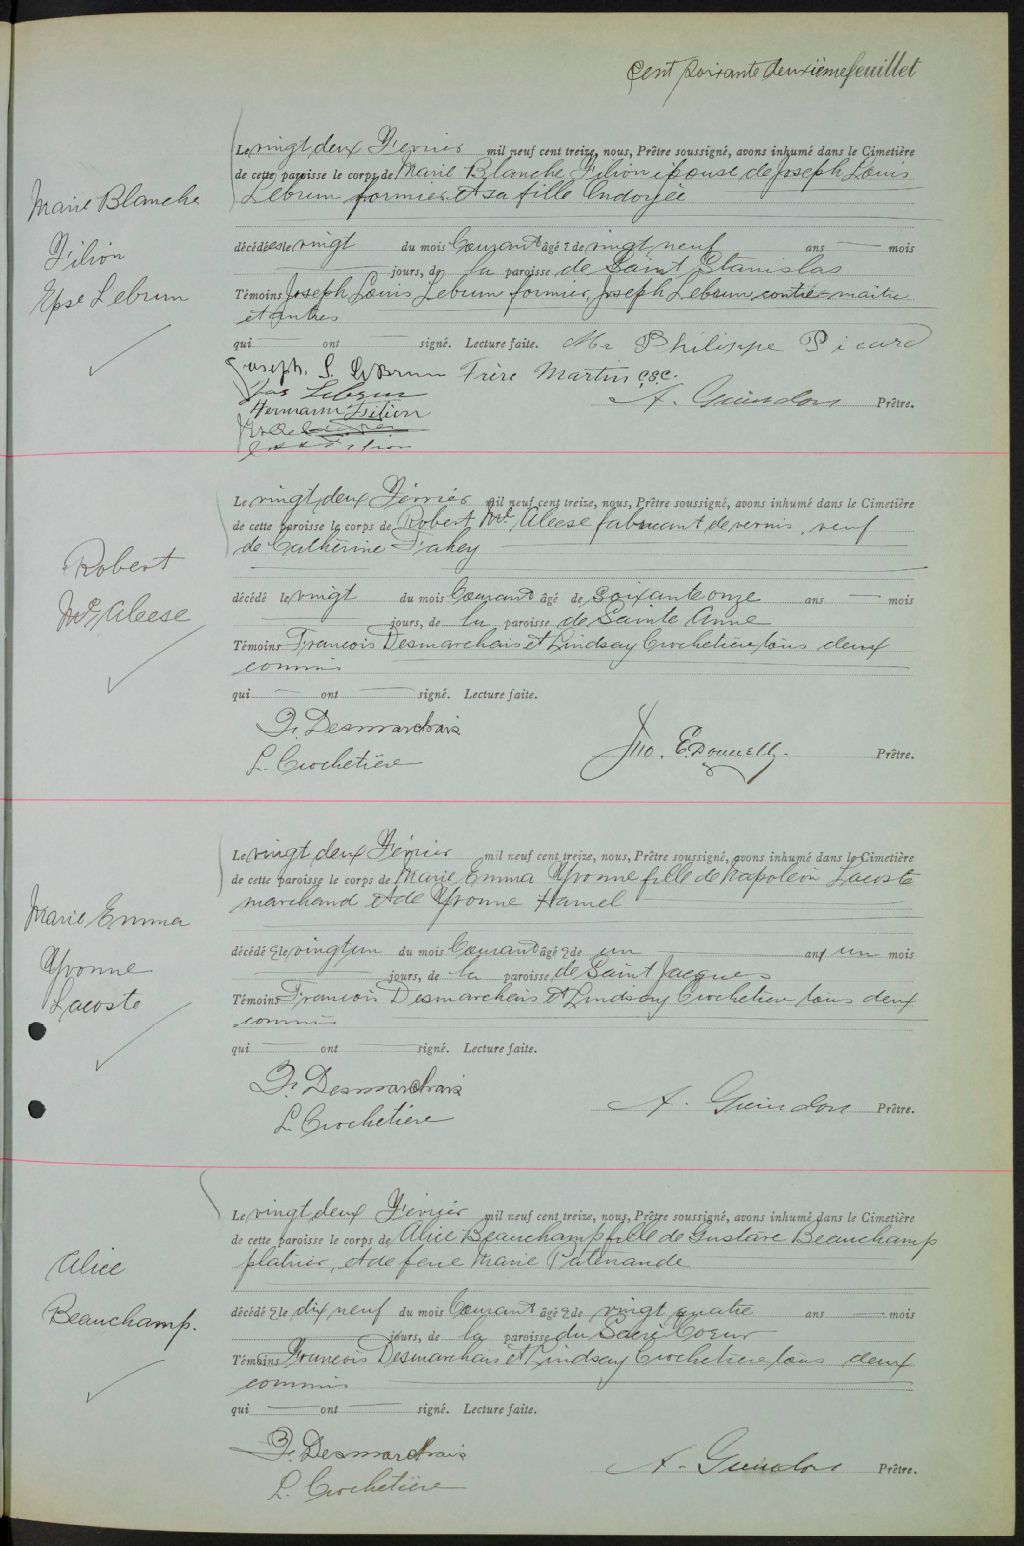 Cent soixante deuxième feuillet
Le vingt deux Février mil neuf cent treize, nous, Prêtre soussigné, avons inhumé dans le Cimetière
de cette paroisse le corps de Marie Blanche Filion épouse de Joseph Louis
Lebrun fermier et sa fille Ondoyée
Marie Blanche
Filion
Epse Lebrun
décédées le vingt du mois Courant âgé e de vingt neuf ans — mois
— jours, de la paroisse de Saint Stanislas
Témoins Joseph Louis Lebrun fermier, Joseph Lebrun, contre-maître
et autres
qui — ont — signé. Lecture faite. Mr Philippe Picard
Joseph. L. LeBrun Frère Martin c.s.c.
Jos Lebrun
A. Guindon Prêtre.
Hermann Filion
Filion
Le vingt deux Février mil neuf cent treize, nous, Prêtre soussigné, avons inhumé dans le Cimetière
de cette paroisse le corps de Robert Mc Aleese fabricant de vernis, veuf
de Catherine Fahey
Robert
Mc Aleese
décédé le vingt du mois Courant âgé de soixante onze ans — mois
— jours, de la paroisse de Sainte Anne
Témoins Francois Desmarchais et Lindsay Crochetière tous deux
commis
qui — ont — signé. Lecture faite.
F. Desmarchais
Jno. E. Donnelly. Prêtre.
L. Crochetière
Le vingt deux Février mil neuf cent treize, nous, Prêtre soussigné, avons inhumé dans le Cimetière
de cette paroisse le corps de Marie Emma Yvonne fille de Napoléon Lacoste
marchand et de Yvonne Hamel
Marie Emma
Yvonne
Lacoste
décédé e le vingt un du mois Courant âgé e de un an, un mois
— jours, de la paroisse de Saint Jacques
Témoins Francois Desmarchais et Lindsay Crochetière tous deux
commis
qui — ont — signé. Lecture faite.
F. Desmarchais
A. Guindon Prêtre.
L. Crochetière
Le vingt deux Février mil neuf cent treize, nous, Prêtre soussigné, avons inhumé dans le Cimetière
de cette paroisse le corps de Alice Beauchamp fille de Gustave Beauchamp
plâtrier, et de feue Marie Patenaude
Alice
Beauchamp.
décédé e le dix neuf du mois Courant âgé e de vingt quatre ans — mois
— jours, de la paroisse du Sacré Coeur
Témoins Francois Desmarchais et Lindsay Crochetière tous deux
commis
qui — ont — signé. Lecture faite.
F. Desmarchais
A. Guindon Prêtre.
L. Crochetière